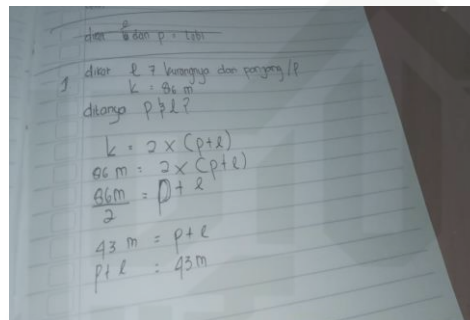 dikat l dan p = lobi
1 dikat l 7 kurangnya dari panjang/p.
k = 86 m
ditanya p & l?
k = 2 x (p+l)
86 m = 2 x (p+l)
86m/2 = p + l
43 m = p+l
p+l = 43m